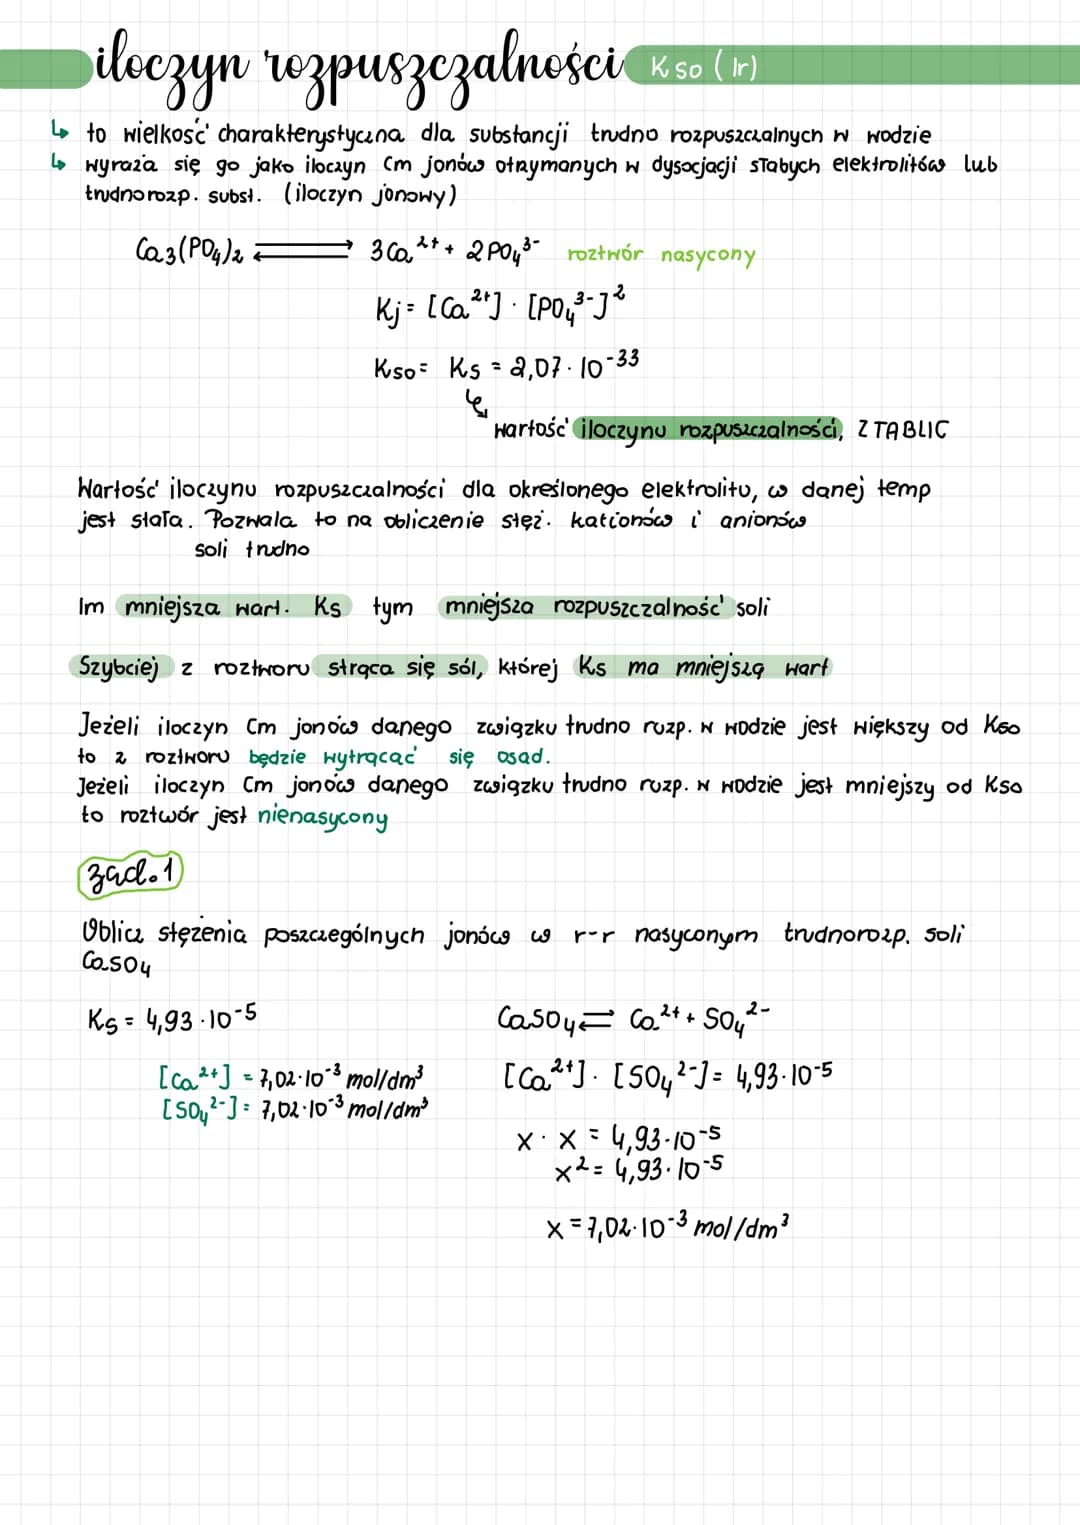 iloczyn rozpuszczalności Kso (Ir)
↳ to wielkość charakterystyczna dla substancji trudno rozpuszczalnych w wodzie
↳ wyraża się go jako iloczyn Cm jonów otrzymanych w dysocjacji słabych elektrolitów lub
trudnorozp. subst. (iloczyn jonowy)
Ca₃(PO₄)₂ ⇌ 3Ca²⁺ + 2PO₄³⁻ roztwór nasycony
Kj = [Ca²⁺] · [PO₄³⁻]²
Kso = Ks = 2,07 · 10⁻³³
wartość iloczynu rozpuszczalności, Z TABLIC
Wartość iloczynu rozpuszczalności dla określonego elektrolitu, w danej temp
jest stała. Pozwala to na obliczenie stęż. kationów i anionów
soli trudno
Im mniejsza wart. Ks tym mniejsza rozpuszczalność soli
Szybciej z roztworu strąca się sól, której Ks ma mniejszą wart
Jeżeli iloczyn Cm jonów danego związku trudno rozp. w wodzie jest większy od Kso
to z roztworu będzie wytrącać się osad.
Jeżeli iloczyn Cm jonów danego związku trudno rozp. w wodzie jest mniejszy od Kso
to roztwór jest nienasycony
zad.1
Oblicz stężenia poszczególnych jonów w r-r nasyconym trudnorozp. soli
CaSO₄
Ks = 4,93 · 10⁻⁵
CaSO₄ ⇌ Ca²⁺ + SO₄²⁻
[Ca²⁺] = 7,02 · 10⁻³ mol/dm³
[SO₄²⁻] = 7,02 · 10⁻³ mol/dm³
[Ca²⁺] · [SO₄²⁻] = 4,93 · 10⁻⁵
x · x = 4,93 · 10⁻⁵
x² = 4,93 · 10⁻⁵
x = 7,02 · 10⁻³ mol/dm³